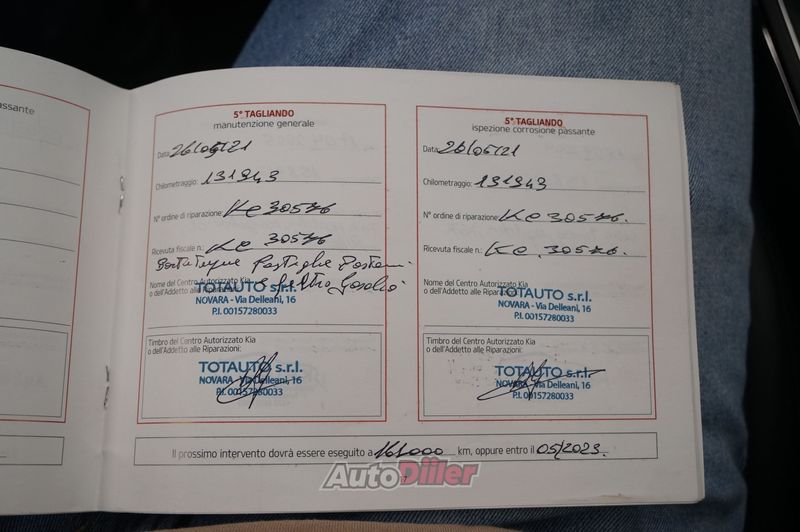 assante
5° TAGLIANDO
manutenzione generale
Data: 26/05/21
Chilometraggio: 131943
N° ordine di riparazione: KC 30576
Ricevuta fiscale n.: KC 30576
Pastiglie
Nome del Centro Autorizzato Kia
o dell'Addetto alle Riparazioni:
TOTAUTO s.r.l.
NOVARA - Via Delleani, 16
P.I. 00157280033
Timbro del Centro Autorizzato Kia
o dell'Addetto alle Riparazioni:
TOTAUTO s.r.l.
NOVARA - Via Delleani, 16
P.I. 00157280033
5° TAGLIANDO
ispezione corrosione passante
Data: 26/05/21
Chilometraggio: 131943
N° ordine di riparazione: KC 30576.
Ricevuta fiscale n.: KC. 30576.
Nome del Centro Autorizzato Kia
o dell'Addetto alle Riparazioni:
TOTAUTO s.r.l.
NOVARA - Via Delleani, 16
P.I. 00157280033
Timbro del Centro Autorizzato Kia
o dell'Addetto alle Riparazioni:
TOTAUTO s.r.l.
NOVARA - Via Delleani, 16
P.I. 00157280033
Il prossimo intervento dovrà essere eseguito a 161000 km, oppure entro il 05/2023.
AutoDiler